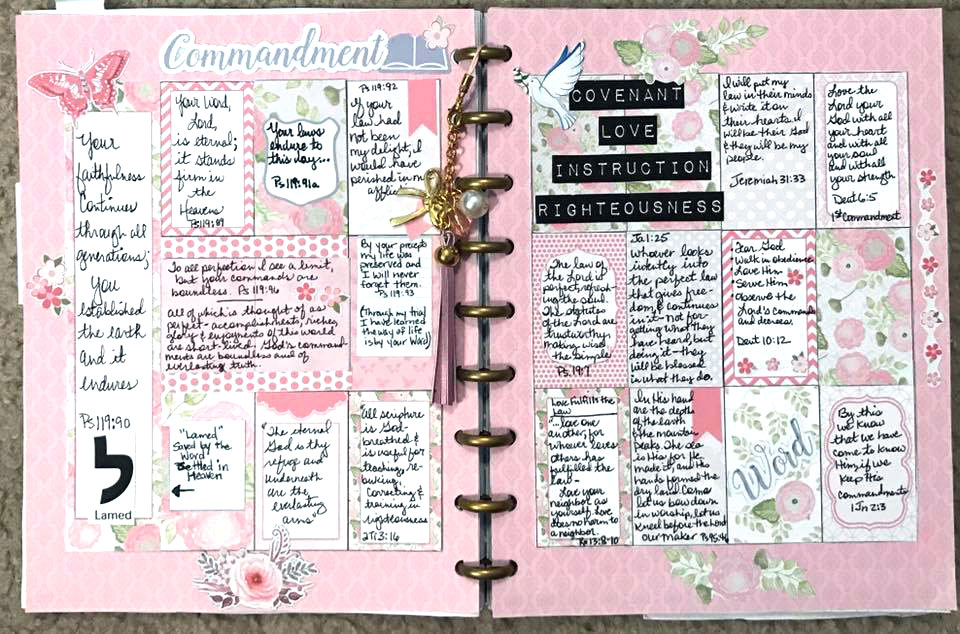 Commandment
Your
faithfulness
Continues
through all
generations;
You
established
the earth
and it
endures
Ps 119:90
ל
Lamed
Your word,
Lord,
is eternal;
it stands
firm in
the
Heavens
Ps 119:89
Your laws
endure to
this day...
Ps 119:91a
Ps 119:92
If your
law had
not been
my delight, I
would have
perished in my
To all perfection I see a limit,
but your commands are
boundless. Ps 119:96
All of which is thought of as
perfect - accomplishments, riches,
glory & enjoyments of this world
are short-lived. God's command-
ments are boundless and of
everlasting truth.
By your precepts
my life was
preserved and
I will never
forget them.
Ps 119:93
(Through my trial
I have learned
the way of life
is by your Word)
"Lamed"
Saved by the
Word
Settled in
Heaven
"The eternal
God is thy
refuge and
underneath
are the
everlasting
arms"
All scripture
is God-
breathed &
is useful for
teaching, re-
buking,
Correcting &
training in
righteousness
2Ti 3:16
COVENANT
LOVE
INSTRUCTION
RIGHTEOUSNESS
I will put my
law in their minds
& write it on
their hearts. I
will be their God
& they will be my
people.
Jeremiah 31:33
Love the
Lord your
God with all
your heart
and with all
your soul
and with all
your strength
Deut 6:5
1st Commandment
The law of
the Lord is
perfect, refresh-
ing the soul.
The statutes
of the Lord are
trustworthy,
making wise
the simple
Ps 19:7
Ja 1:25
Whoever looks
intently into
the perfect law
that gives free-
dom, & continues
in it - not for-
getting what they
have heard, but
doing it - they
will be blessed
in what they do.
Fear God
Walk in obedience
Love Him
Serve Him
Observe the
Lord's commands
and decrees.
Deut 10:12
Love fulfills the
Law
"...love one
another, for
whoever loves
others has
fulfilled the
law -
Love your
neighbor as
yourself. Love
does no harm to
a neighbor.
Ro 13:8-10
In His hand
are the depths
of the earth
& the mountain
peaks. The sea
is His for He
made it, and His
hands formed the
dry land. Come
let us bow down
in worship, let us
Kneel before the Lord
our Maker
Word
By this
we know
that we have
come to know
Him; if we
keep His
commandments
1 Jn 2:3